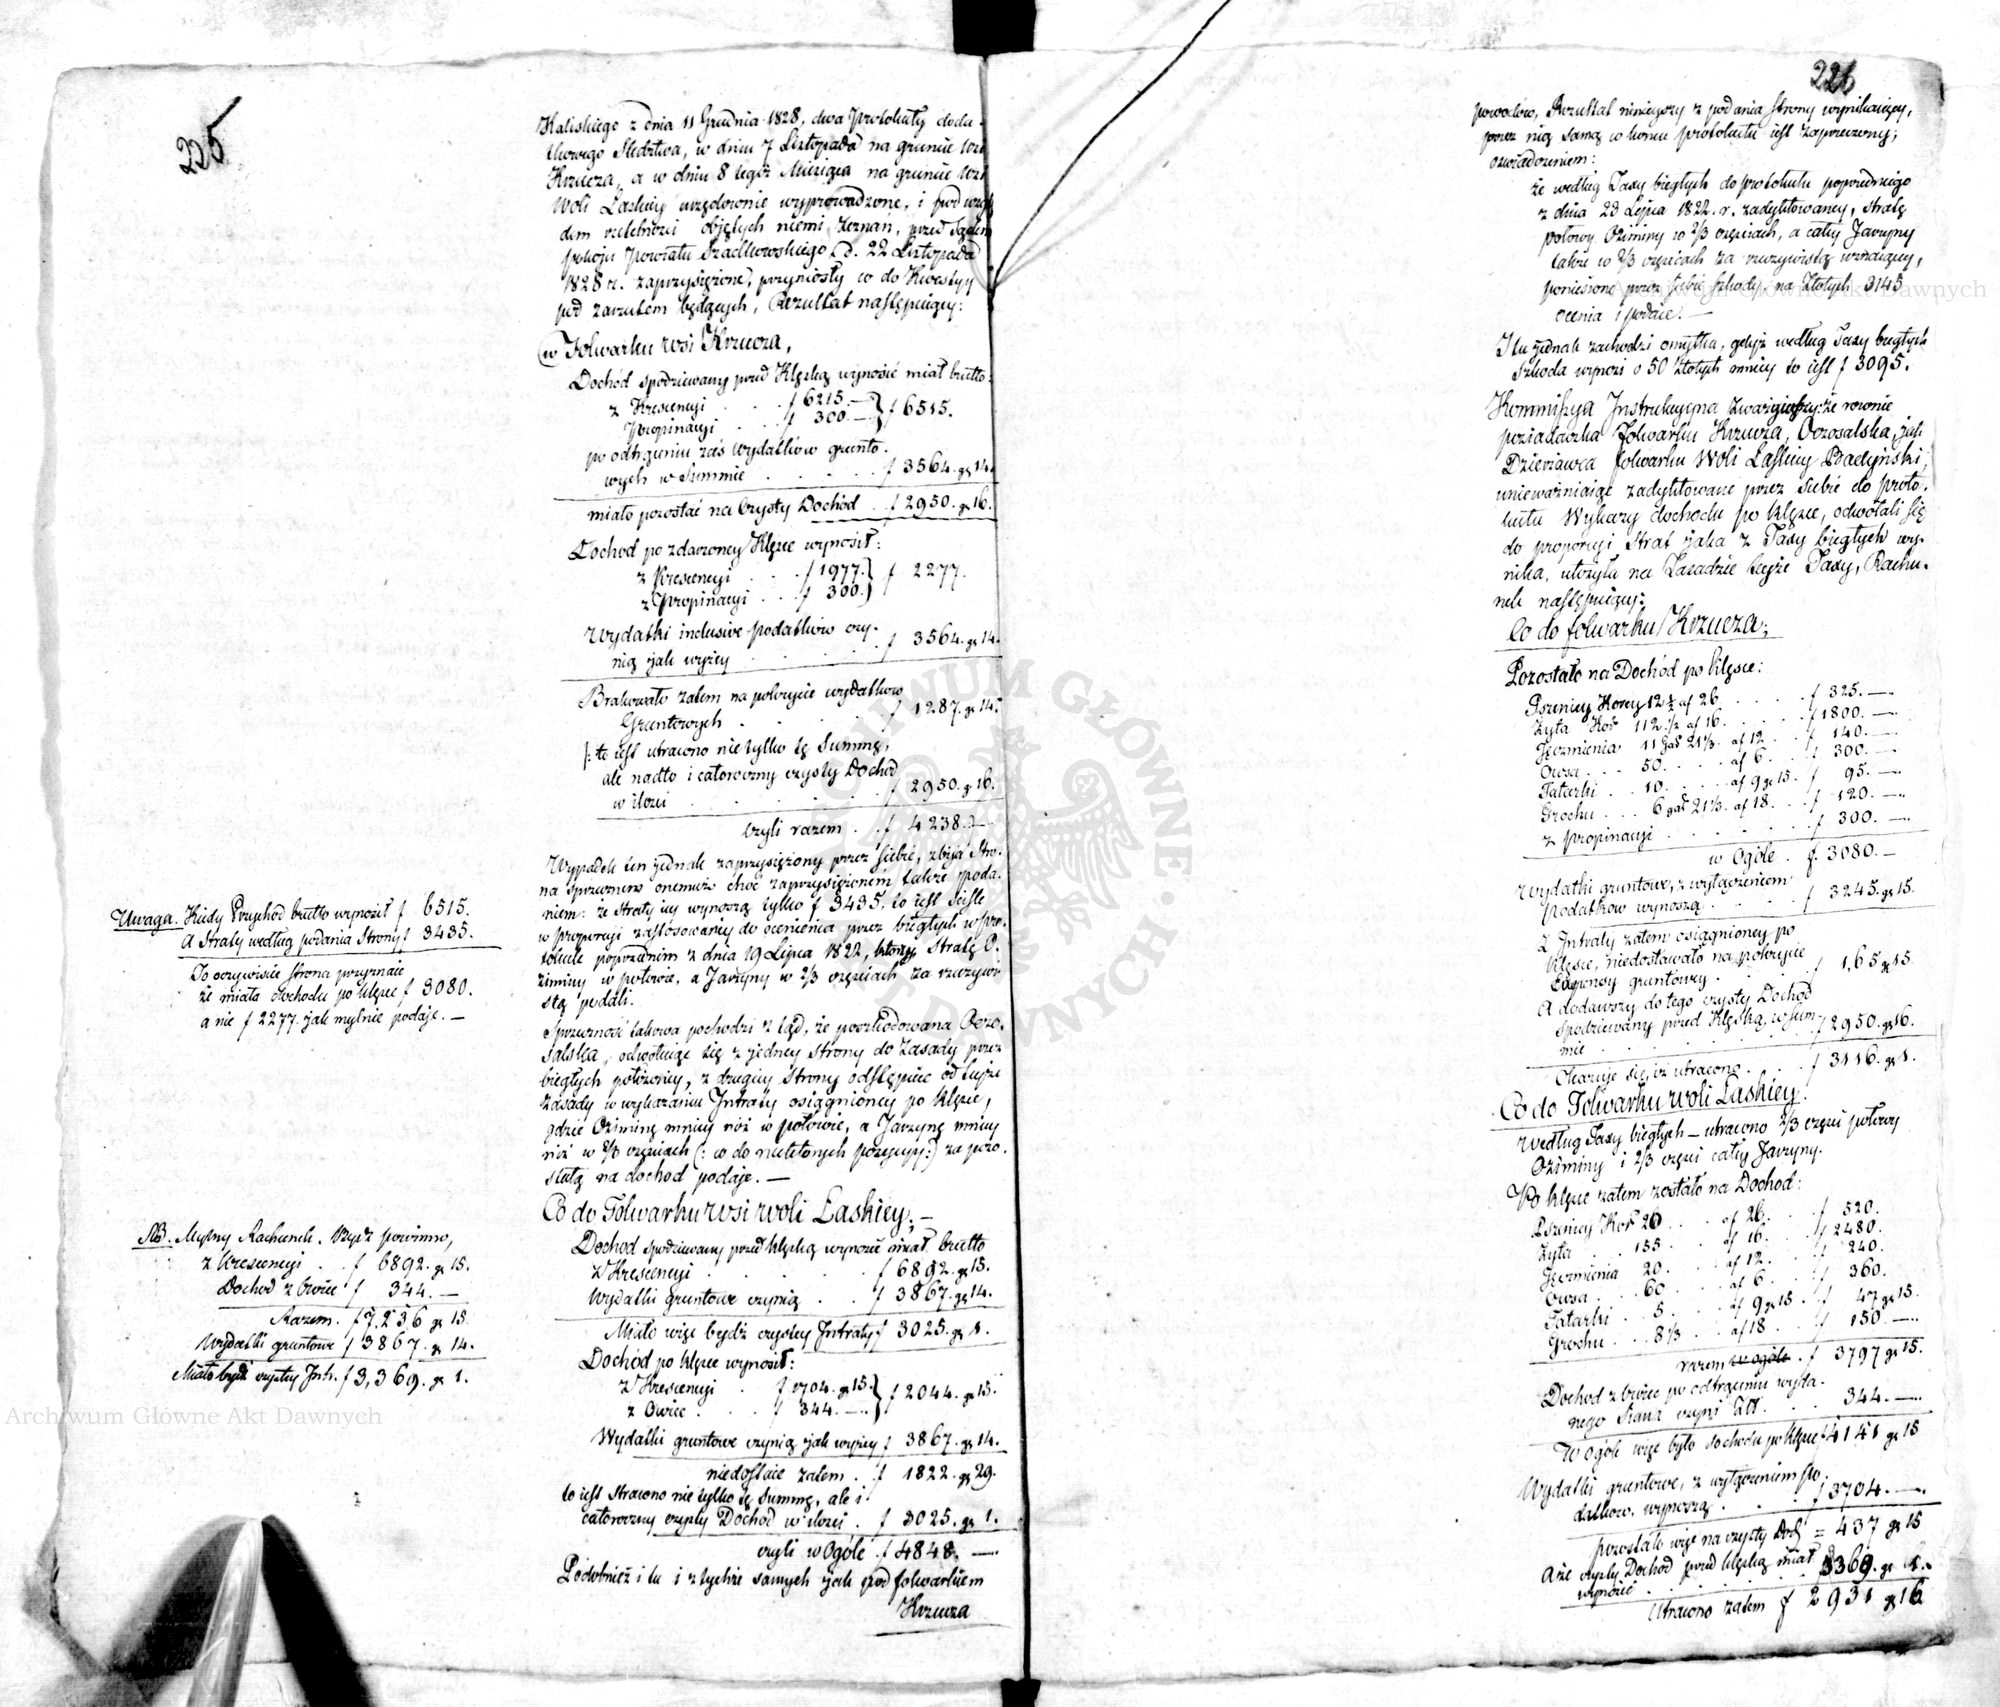 225
Kaliskiego z dnia 11 Grudnia 1828, dwa Protokuły doda-
tkowego Śledztwa, w dniu 7 Listopada na gruncie wsi
Krzucza, a w dniu 8 tegoż Miesiąca na gruncie wsi
Woli Łaskiey urzędownie wyprowadzone, i pod wzglę
dem rzetelności objętych niemi zeznań, przed Sądem
pokoju Powiatu Szadkowskiego d. 22 Listopada
1828 r. zaprzysiężone, przyniosły co do Kwestyy
pod zarzutem będących, Rezultat następuiący:
w Folwarku wsi Krzucza,
Dochód spodziewany przed Klęską wynosić miał brutto:
z Krescencyi . . . f 6215. — } f 6515.
Propinacyi . . . f 300. —
po odtrąceniu zaś wydatków grunto-
wych w Summie . . . . f 3564. gr 14.
miało pozostać na Czysty Dochód . f 2950. gr 16.
Dochod po zdarzoney Klęsce wynosił:
z Krescencyi . . . f 1977. } f 2277.
z Propinacyi . . . f 300.
Wydatki inclusive podatków czy-
nią jak wyżey . . . . f 3564. gr 14.
Brakowało zatem na pokrycie wydatków
Gruntowych . . . . f 1287. gr 14.
/: to iest utracono nie tylko tę Summę,
ale nadto i całoroczny czysty Dochód
w ilości . . . . . f 2950. gr 16.
czyli razem . . f 4238. —
Wypadek ten jednak zaprzysiężony przez siebie, zbija Stro-
na sprzecznem onemuż choć zaprzysiężonem także poda-
niem: że straty iey wynoszą tylko f 3435. to iest ściśle
w proporcyi zastosowaney do ocenienia przez biegłych w pro-
tokule poprzednim z dnia 19 Lipca 1822, którzy Stratę O-
ziminy w połowie, a Jarzyny w 2/3 częściach za rzeczywi-
stą podali.
Sprzeczność takowa pochodzi z tąd, że poszkodowana Oczo-
salska, odwołuiąc się z jedney strony do Zasady przez
biegłych położoney, z drugiey strony odstępuie od teyże
zasady w wykazaniu Intraty osiągnioney po klęsce,
gdzie Oziminę mniey niż w połowie, a Jarzynę mniey
niż w 2/3 częściach (: co do niektórych pozycyy:) za pozo-
stałą na dochod podaje. —
Co do Folwarku wsi Woli Łaskiey; —
Dochod spodziewany przed klęską wynosić miał brutto
z Krescencyi . . . . f 6892. gr 15.
Wydatki gruntowe czynią . . f 3867. gr 14.
Miało więc bydź czystey Intraty f 3025. gr 1.
Dochód po klęsce wynosił:
z Krescencyi . f 1704. gr 15. } f 2044. gr 15.
z Owiec . . . f 344. —
Wydatki gruntowe czynią jak wyżey f 3867. gr 14.
niedostaie zatem . f 1822. gr 29.
to iest stracono nie tylko tę Summę, ale i
całoroczny czysty Dochód w ilości . f 3025. gr 1.
czyli w Ogóle . f 4848. —
Podobnież i tu i z tychże samych jak pod folwarkiem
Krzucza
Uwaga. Kiedy Przychód brutto wynosił f 6515.
A Straty według podania Strony f 3435.
To oczywiście strona przyznaie
że miała dochodu po klęsce f 3080.
a nie f 2277. jak mylnie podaje. —
NB. Mylny Rachunek. Bydź powinno,
z Krescencyi . . f 6892. gr 15.
Dochód z Owiec f 344. —
Razem. f 7,236 gr 15
Wydatki gruntowe f 3867. gr 14.
Miało bydź czystey Int. f 3,369. gr 1.
226
powodów, Rezultat ninieyszy z podania strony wynikaiący,
przez nią samą w końcu protokułu iest zaprzeczony;
oświadczeniem:
że według Taxy biegłych do protokułu poprzedniego
z dnia 23 Lipca 1822. r. zadyktowaney, stratę
połowy Oziminy w 2/3 częściach, a całey Jarzyny
także w 2/3 częściach za rzeczywistą uznaiący,
poniesione przez siebie szkody na Złotych 3145
ocenia i podaie. —
Tu jednak zachodzi omyłka, gdyż według Taxy biegłych
Szkoda wynosi o 50 złotych mniey to iest f 3095.
Kommissya Instrukcyjna zważaiący: że równie
posiadaczka Folwarku Krzucza, Oczosalska, jak
Dzierżawca folwarku Woli Łaskiey Badyński,
unieważniaiąc zadyktowane przez siebie do proto-
kułu Wykazy dochodu po klęsce, odwołali się
do proporcyi strat jaka z Taxy biegłych wy-
nika, ułożyła na Zasadzie teyże Taxy, Rachu-
nek następuiący:
Co do folwarku Krzucza;
Pozostało na Dochód po klęsce:
Pszenicy Korcy 12 1/2 af 26 . . . f 325. —
Żyta Kor 112 1/2 af 16 . . . f 1800. —
Jęczmienia 11 gar 21 1/3. af 12 . . f 140. —
Owsa . . . 50. . . . af 6 . . f 300. —
Tatarki . . 10. . . . af 9 gr 15. f 95. —
Grochu . . . 6 gar 21 1/3. af 18. . . f 120. —
z Propinacyi . . . . . f 300. —
w Ogóle . f. 3080. —
Wydatki gruntowe, z wyłączeniem
podatkow wynoszą . . . . f 3245. gr 15.
Z Intraty zatem osiągnioney po
klęsce, niedostawało na pokrycie
Expensy gruntowey . . . f 1,65 gr 15
A dodawszy do tego czysty Dochód
spodziewany przed Klęską, w sum-
mie . . . . . f 2950. gr 16.
Okazuje się, iż utracono . . . f 3116. gr 1.
Co do Folwarku Woli Łaskiey.
Według Taxy biegłych — utracono 2/3 części połowy
Oziminy i 2/3 części całey Jarzyny.
Po klęsce zatem zostało na Dochod:
Pszenicy Kor 20 . . . af 26. . . f 520.
Żyta . . . 155 . . . af 16. . . f 2480.
Jęczmienia 20. . . af 12. . . f 240.
Owsa . . . 60 . . . af 6. . . f 360.
Tatarki . . 5. . . af 9 gr 15 . . f 47 gr 15.
Grochu . . 8 1/3 . . af 18 . . f 150. —
razem w ogóle . f 3797 gr 15.
Dochod z Owiec po odtrąceniu wyda-
nego Siana czyni Złt. . . . 344. —
W ogóle więc było dochodu po klęsce f 4141 gr 15
Wydatki gruntowe, z wyłączeniem po-
datkow. wynoszą . . . f 3704. —
pozostało więc na czysty Doch = 437 gr 15
A że czysty Dochod przed klęską miał
wynosić . . . . . 3369. gr 1.
Utracono zatem f 2931 gr 16
Archiwum Główne Akt Dawnych
Archiwum Główne Akt Dawnych
ARCHIWUM GŁÓWNE · AKT DAWNYCH ·